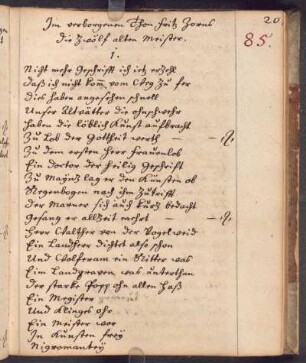 Im verborgenen Thon Fritz Zorns
die Zwölf alten Meister.
20
85.
1.
Nicht mehr Geschrifft ich ietz erzehl
Daß ich nicht kom̄ vom Weg zu fer
Dies haben angesehen schnell
Unser Altvätter die ohnschwehr
haben die löblich Kunst aufbracht
Zu Lob der Gottheit werth
Zu dem ersten Herr Frauenlob
Ein Doctor der heilig Geschrifft
Zu Maÿntz lag er den Künsten ob
Regenbogen nach ihm Zutrifft
Der Marner sich auf Kurtz bedacht
Gesang er allzeit
Herr Walther von der Vogelweid
Ein Landherr dichtet also schon
Und Wolferam ein Ritter was
Ein Landgraven was unterthan
der starke Popp ohn allen Haß
Ein Megister
Und Klingeß ohr
Ein Meister wer
In Künsten freÿ
Nigromanteÿ